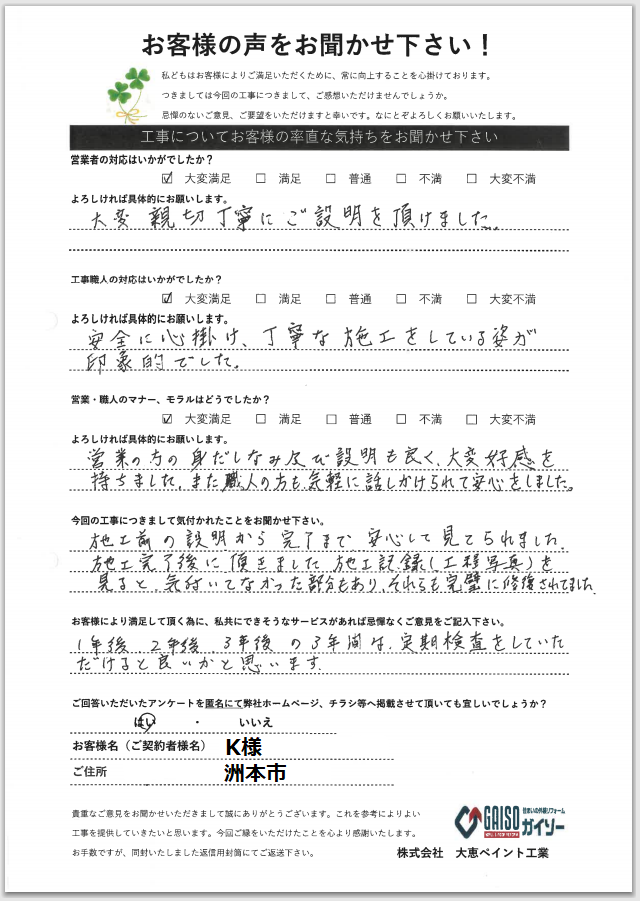 お客様の声をお聞かせ下さい！
私どもはお客様によりご満足いただくために、常に向上することを心掛けております。
つきましては今回の工事につきまして、ご感想いただけませんでしょうか。
忌憚のないご意見、ご要望をいただけますと幸いです。なにとぞよろしくお願いいたします。
工事についてお客様の率直な気持ちをお聞かせ下さい
営業者の対応はいかがでしたか？
☑ 大変満足 □ 満足 □ 普通 □ 不満 □ 大変不満
よろしければ具体的にお願いします。
大変 親切丁寧にご説明を頂けました。
工事職人の対応はいかがでしたか？
☑ 大変満足 □ 満足 □ 普通 □ 不満 □ 大変不満
よろしければ具体的にお願いします。
安全に心掛け、丁寧な施工をしている姿が
印象的でした。
営業・職人のマナー、モラルはどうでしたか？
☑ 大変満足 □ 満足 □ 普通 □ 不満 □ 大変不満
よろしければ具体的にお願いします。
営業の方の身だしなみ及び説明も良く、大変好感を
持ちました。また職人の方も気軽に話しかけられて安心をしました。
今回の工事につきまして気付かれたことをお聞かせ下さい。
施工前の説明から完了まで安心して見てられました。
施工完了後に頂きました施工記録(工程写真)を
見ると、気付いてなかった部分もあり、それらも完璧に修復されてました
お客様により満足して頂く為に、私共にできそうなサービスがあれば忌憚なくご意見をご記入下さい。
1年後 2年後、3年後の3年間は、定期検査をしていた
だけると良いかと思います。
ご回答いただいたアンケートを匿名にて弊社ホームページ、チラシ等へ掲載させて頂いても宜しいでしょうか？
はい ・ いいえ
お客様名（ご契約者様名） K様
ご住所 洲本市
貴重なご意見をお聞かせいただきまして誠にありがとうございます。これを参考によりよい
工事を提供していきたいと思います。今回ご縁をいただけたことを心より感謝いたします。
お手数ですが、同封いたしました返信用封筒にてご返送下さい。
GAISO 住まいの外装リフォーム
ガイソー
株式会社 大恵ペイント工業